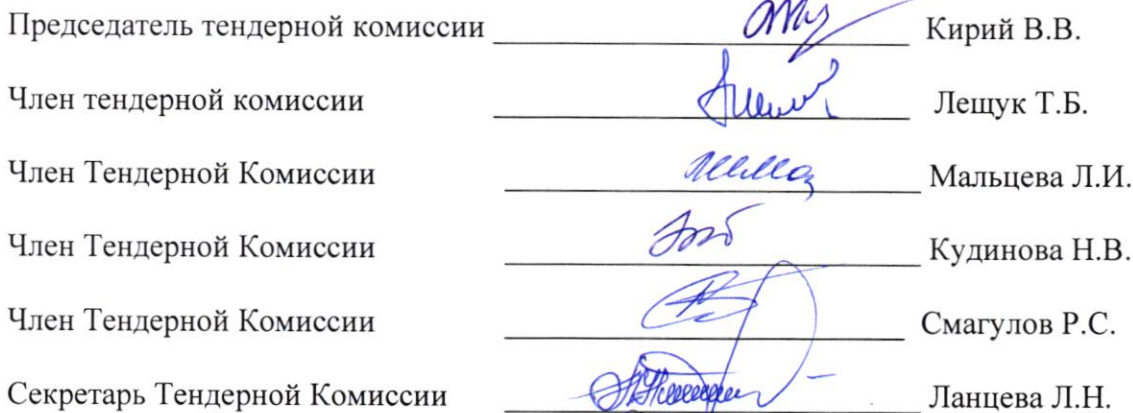 Председатель тендерной комиссии Кирий В.В.
Член тендерной комиссии Лещук Т.Б.
Член Тендерной Комиссии Мальцева Л.И.
Член Тендерной Комиссии Кудинова Н.В.
Член Тендерной Комиссии Смагулов Р.С.
Секретарь Тендерной Комиссии Ланцева Л.Н.